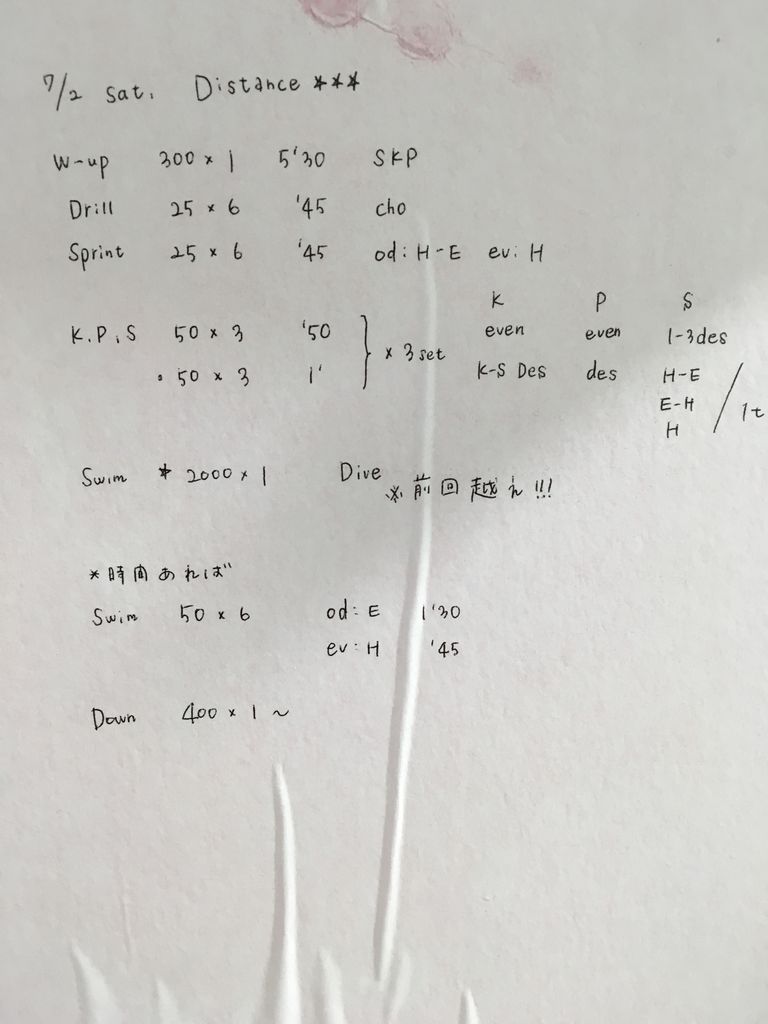 7/2 Sat. Distance ***
W-up 300 × 1 5'30 SKP
Drill 25 × 6 '45 cho
Sprint 25 × 6 '45 od: H-E ev: H
K P S
K.P.S 50 × 3 '50 } × 3 set even even 1-3des
• 50 × 3 1' K-S Des des H-E
E-H / 1t
H
Swim * 2000 × 1 Dive
※前回越え!!!
*時間あれば
Swim 50 × 6 od: E 1'30
ev: H '45
Down 400 × 1 ~